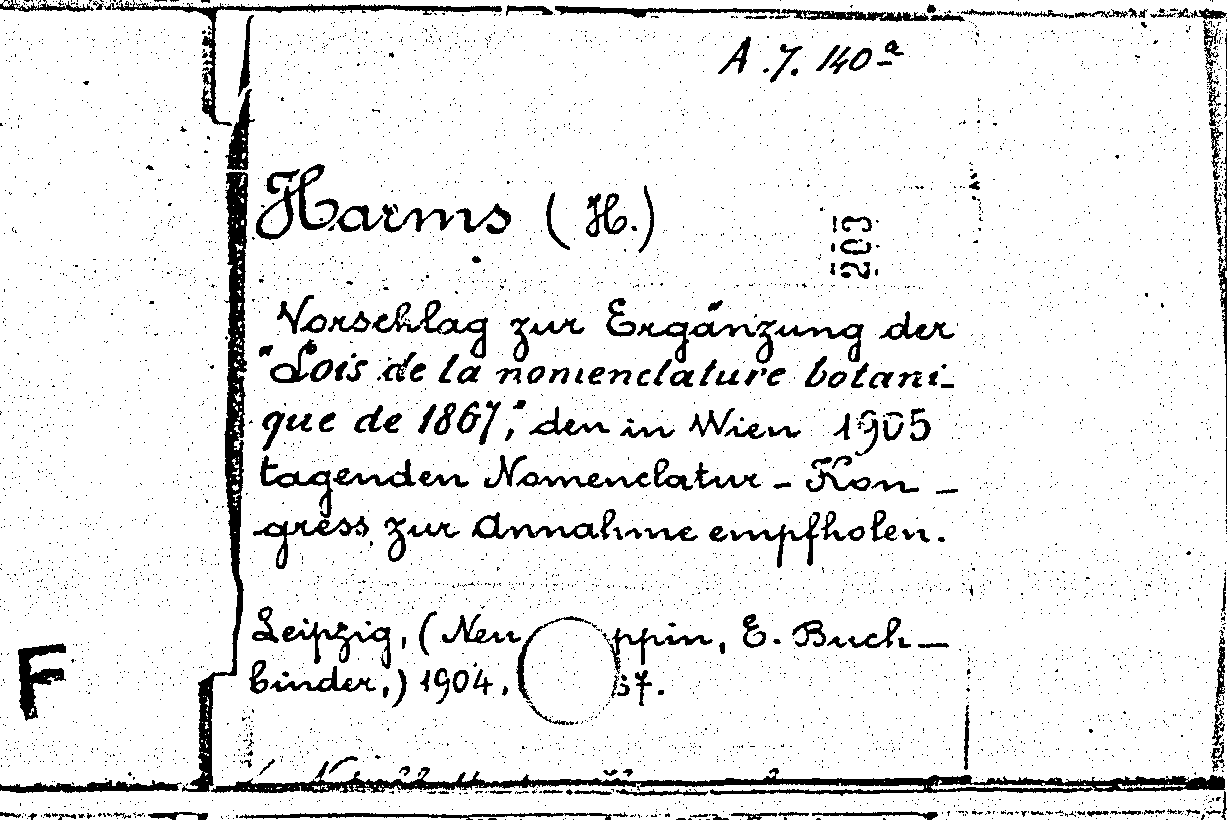 A.7.140ª
Harms (H.)
203
Vorschlag zur Ergänzung der
"Lois de la nomenclature botani-
que de 1867," den in Wien 1905
tagenden Nomenclatur-Kon-
gress zur Annahme empfholen.
Leipzig, (Neu ppin, E. Buch-
binder,) 1904. 37.
F